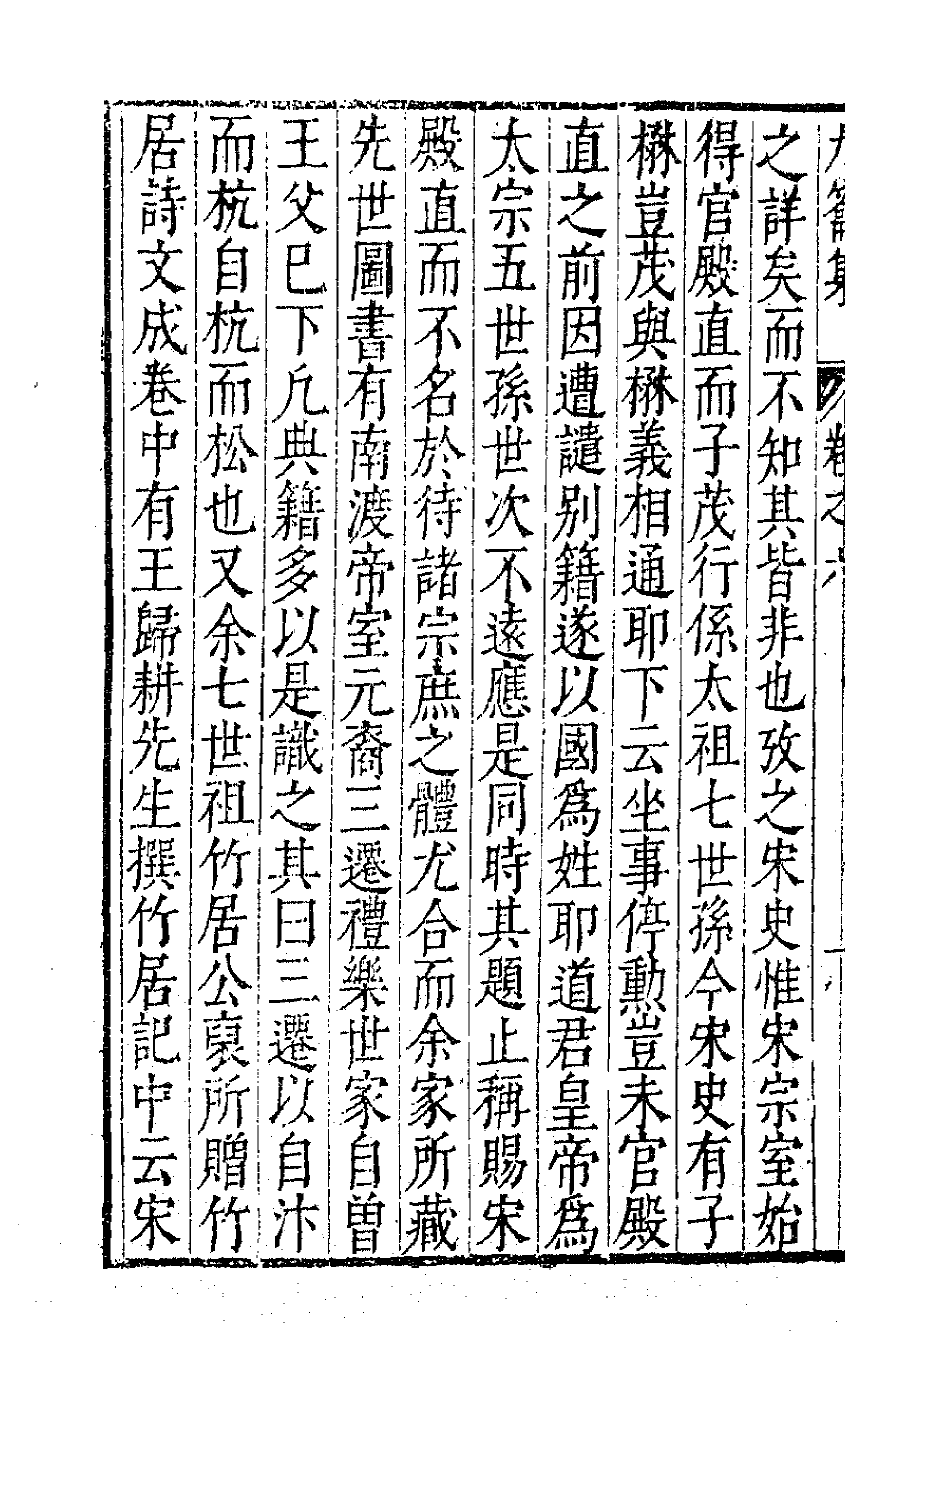 九籥集 卷之六 一
之詳矣而不知其皆非也攷之宋史惟宋宗室始
得官殿直而子茂行係太祖七世孫今宋史有子
楙豈茂與楙義相通耶下云坐事停勲豈未官殿
直之前因遭譴别籍遂以國爲姓耶道君皇帝爲
太宗五世孫世次不遠應是同時其題止稱賜宋
殿直而不名於待諸宗庶之體尤合而余家所藏
先世圖書有南渡帝室元裔三遷禮樂世家自曽
王父已下凢典籍多以是識之其曰三遷以自汴
而杭自杭而松也又余七世祖竹居公裒所贈竹
居詩文成卷中有王歸耕先生撰竹居記中云宋